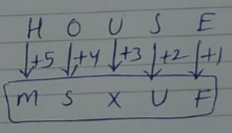 H O U S E
+5 +4 +3 +2 +1
M S X U F